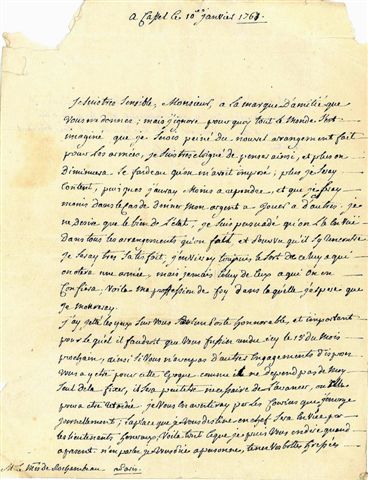 A Cassel le 10e janvier 1761.
Je suis tres sensible, Monsieur, a la marque damitié que
vous me donnes; mais j'ignore pourquoy tout le Monde s'est
imaginé que je serois peiné du nouvel arangement fait
pour les armées, je suis tres eloigné de penser ainsi, et plus on
diminuera le fardeau qu'on m'avoit imposé, plus je seray
Content, puisque j'auray Moins a reprendre, et que je seray
Moins dans le cas de donner Mon argent a a d'autres. je ne
desire que le bien de l'etat, je suis persuadé qu'on l'a en vüe
dans tous les arrangements qu'on fait, et pourvu qu'il s'y rencontre
je seray tres satisfait, j'enviray toujours le sort de celuy a qui
on otera une armée, mais jamais celuy de ceux a qui on en
Confiera. Voila ma proffession de foy dans laquelle j'espere que
je Mourray.
j'ay jetté les yeux sur vous pour un poste honnorable, et important
pour lequel il faudroit que vous fussies rendu icy le 15 du Mois
prochain, ainsi si vous n'aves pas d'autres Engagements disposes
vous a y etre pour cette Epoque comme elle ne depend pas de Moy
seul de la fixer, il sera peut etre necessaire de l'avancer, ou elle
poura etre retardée je vous en avertiray par les Couriers que j'envoye
journellement; la place que je vous destine en chef sera enviée par
les lieutenants generaux Voila tout ce que je puis vous en dire quand
a present n'en parles je vous prie a personne, tenes vos bottes graissées
M. le Mis de Rochambeau a Paris.